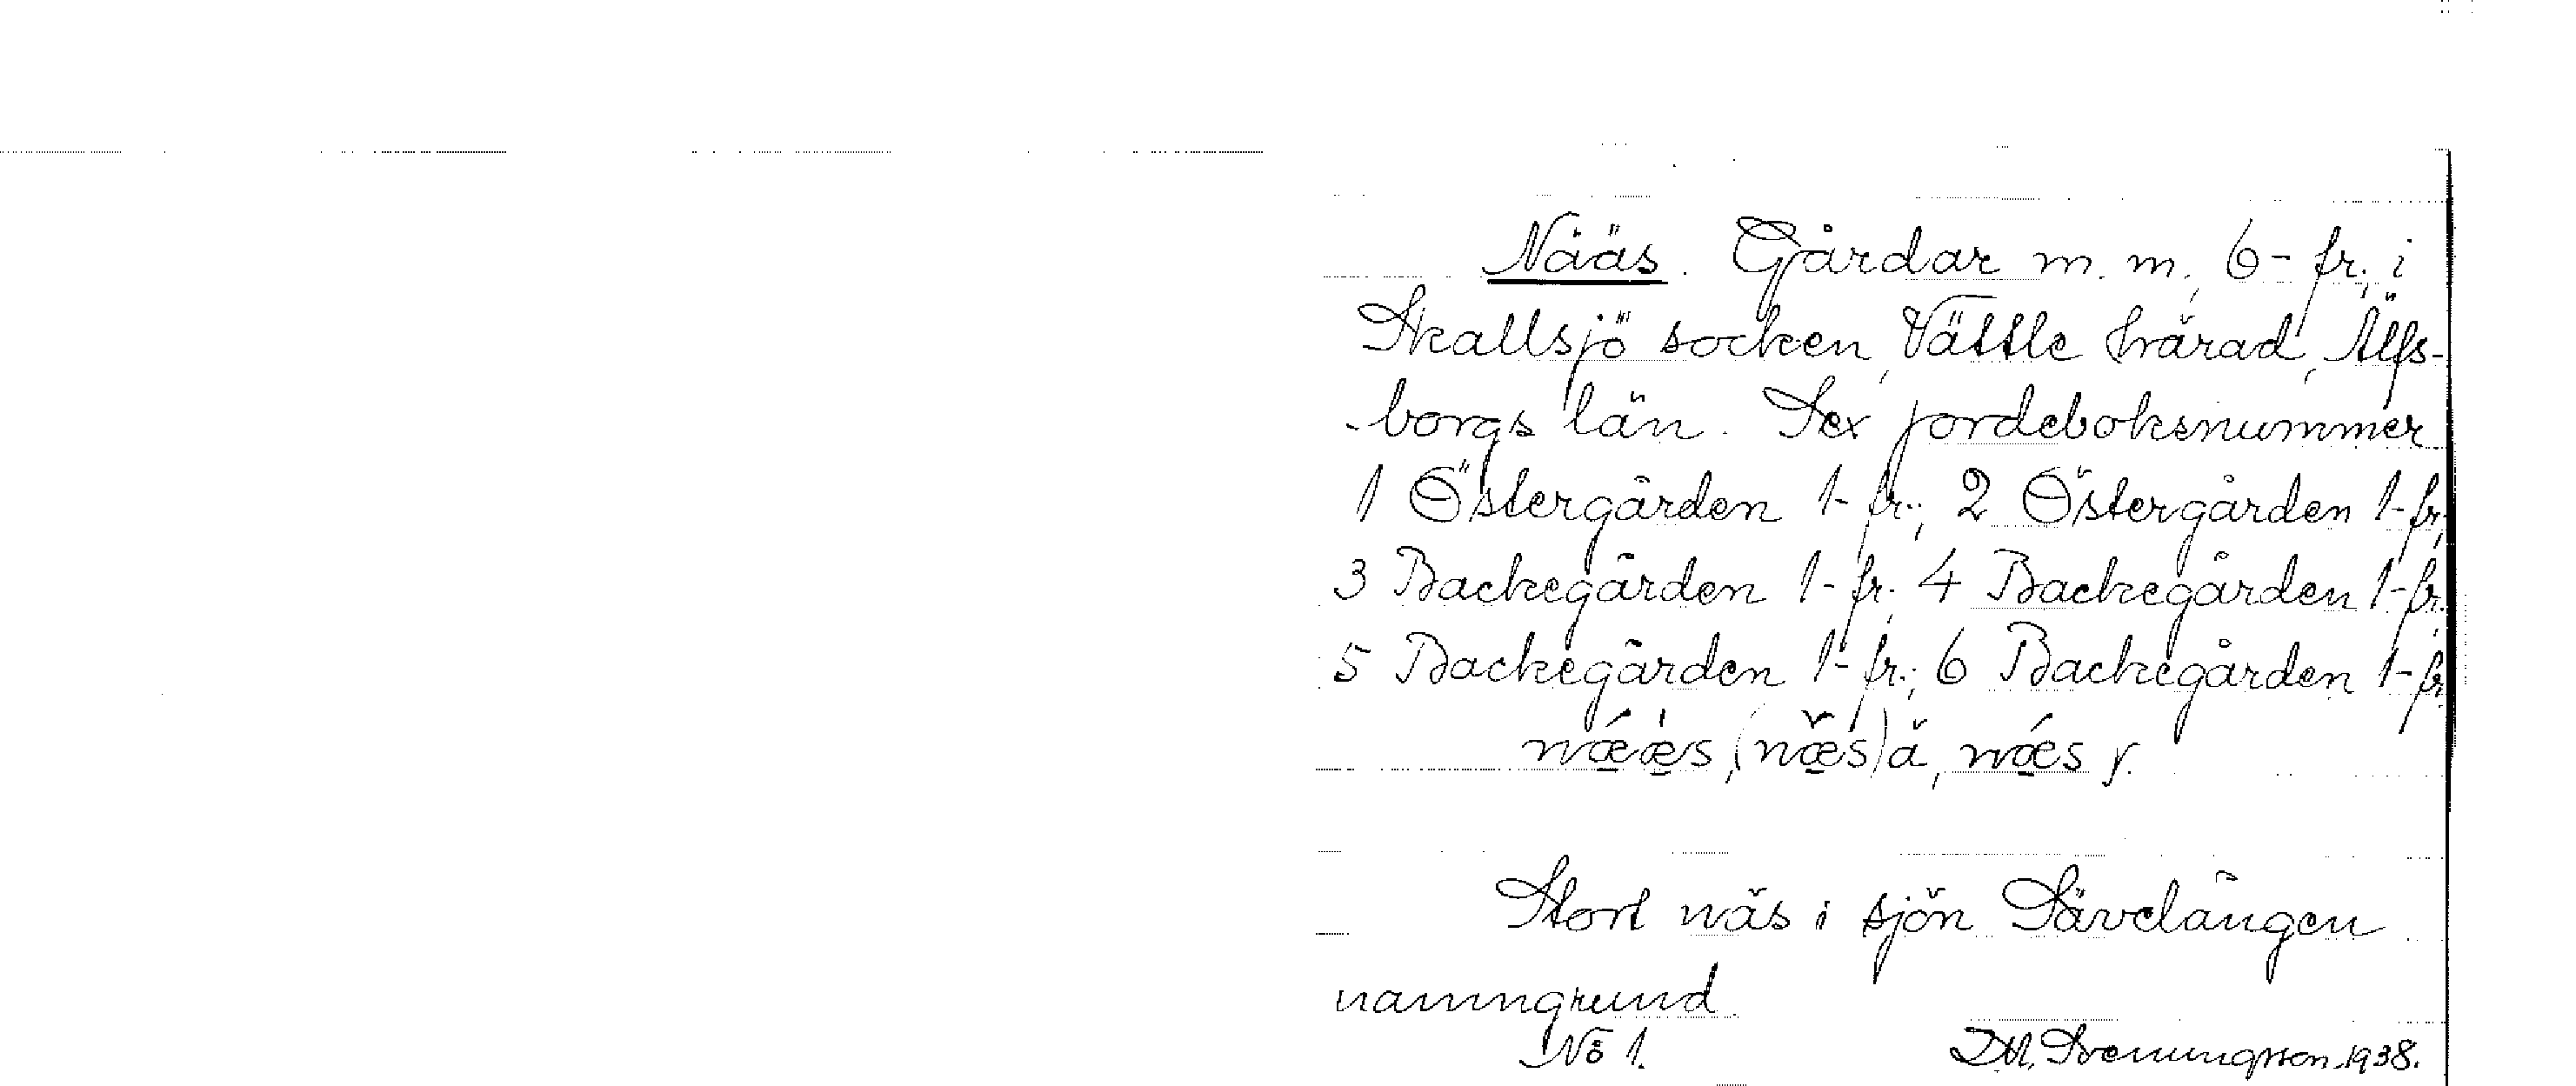 Nääs. Gårdar m. m., 6- fr., i
Skallsjö socken, Vättle härad, Älfs-
borgs län. Sex jordeboksnummer
1 Östergården 1- fr.; 2 Östergården 1- fr.;
3 Backegården 1- fr.; 4 Backegården 1- fr.;
5 Backegården 1- fr.; 6 Backegården 1- fr.
næ̀æ̀s, (næs) ä, nǽs y.
Stort näs i sjön Sävelången
namngrund.
No 1. Svenungsson. 1938.